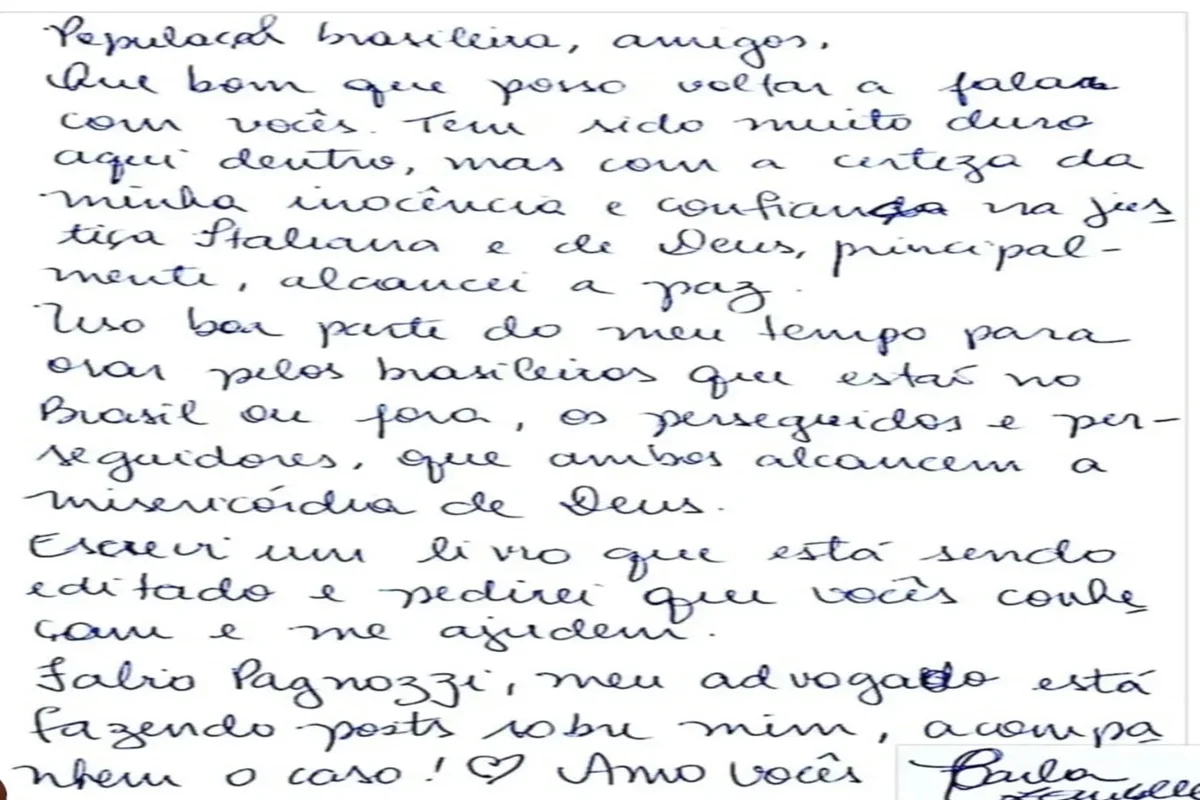 População brasileira, amigos.
Que bom que posso voltar a falar
com vocês. Tem sido muito duro
aqui dentro, mas com a certeza da
minha inocência e confiança na jus
tiça Italiana e de Deus, principal-
mente, alcancei a paz.
Uso boa parte do meu tempo para
orar pelos brasileiros que estaí no
Brasil ou fora, os perseguidos e per-
seguidores, que ambos alcancem a
misericórdia de Deus.
Escrevi um livro que está sendo
editado e pedirei que vocês conhe
çam e me ajudem.
Fabio Pagnozzi, meu advogado está
fazendo posts sobre mim, acompa
nhem o caso! ♡ Amo vocês
Carla